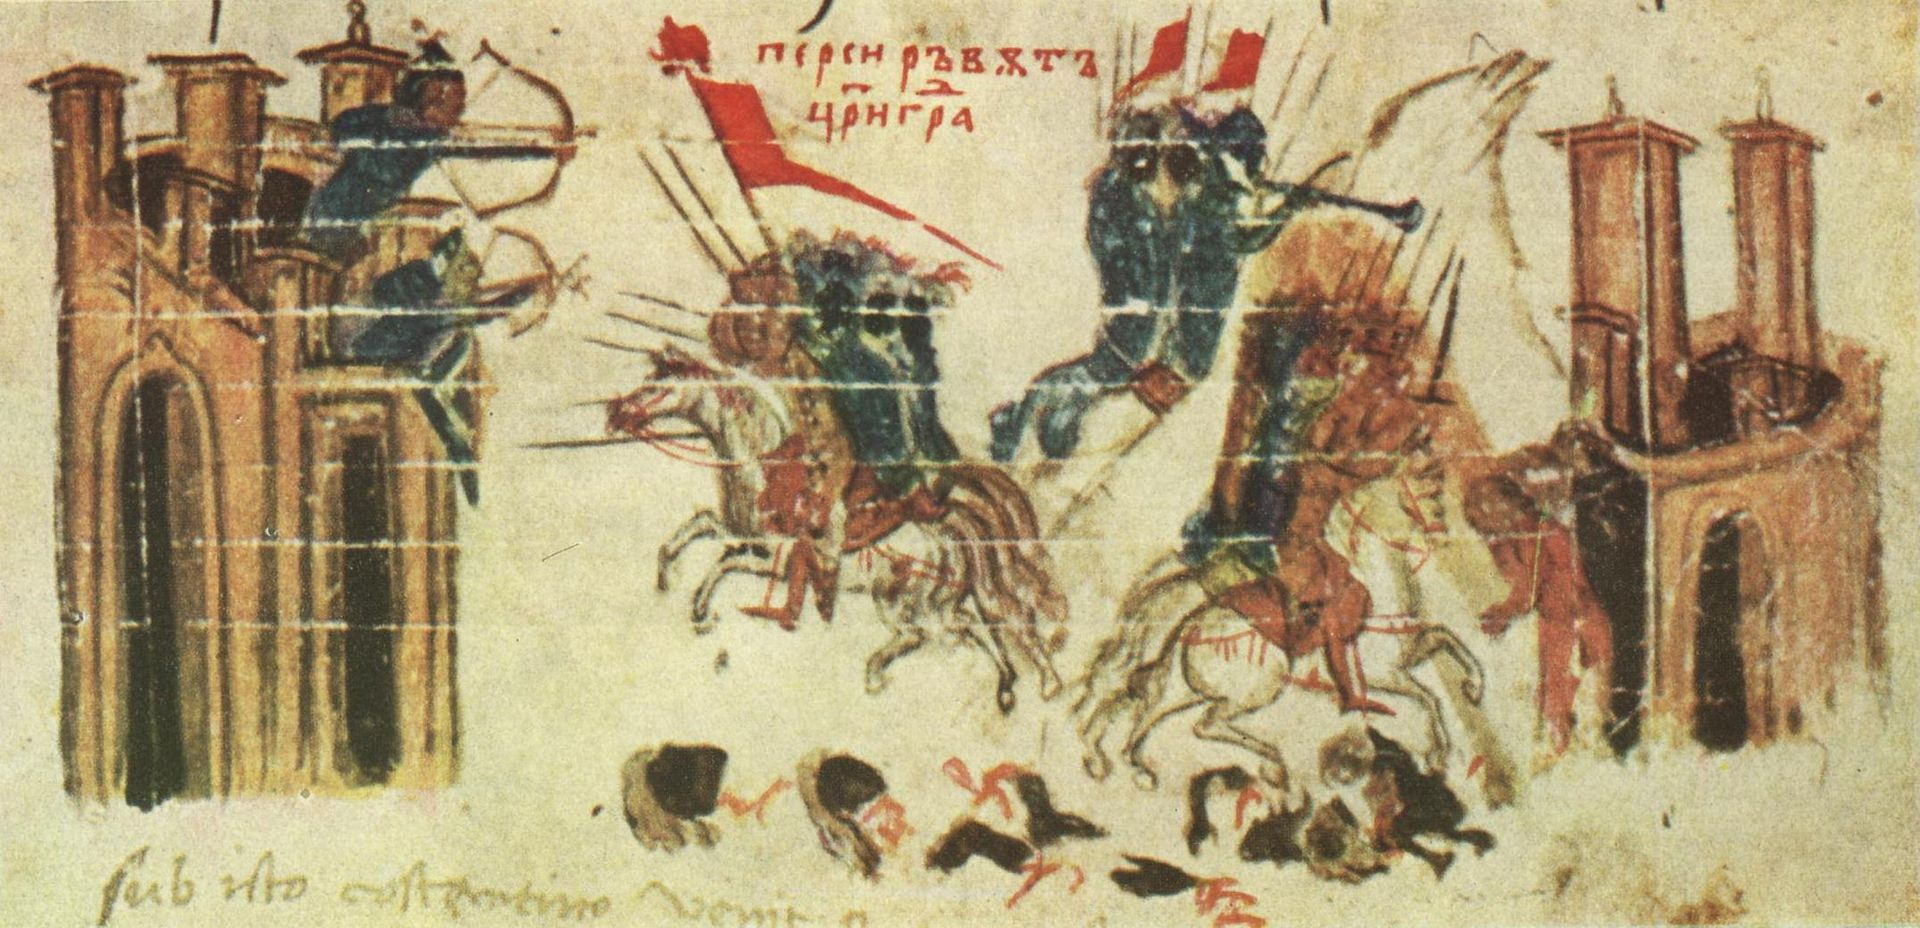 перси рѣвѫтъ
цр҃игра
sub isto costantino venit